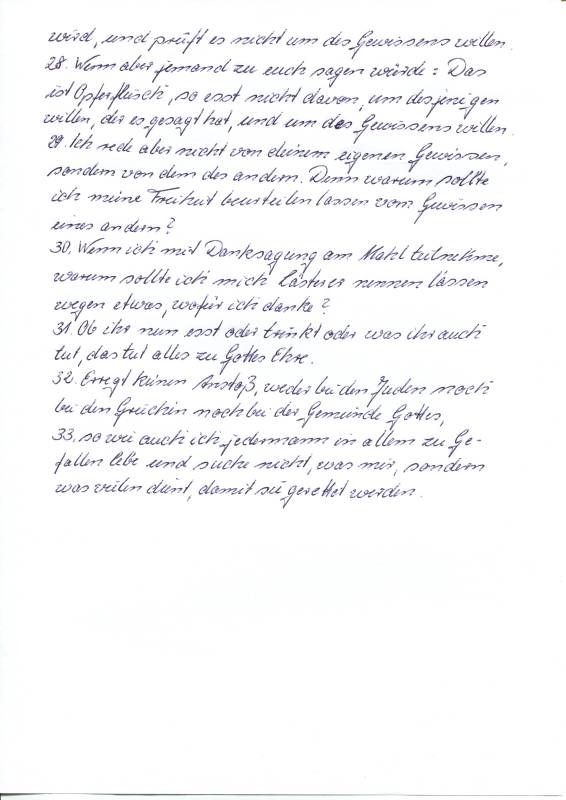 wird, und prüft es nicht um des Gewissens willen.
28. Wenn aber jemand zu euch sagen würde: Das
ist Opferfleisch, so esst nicht davon, um desjenigen
willen, der es gesagt hat, und um des Gewissens willen.
29. Ich rede aber nicht von deinem eigenen Gewissen,
sondern von dem des andern. Denn warum sollte
ich meine Freiheit beurteilen lassen vom Gewissen
eines andern?
30. Wenn ich mit Danksagung am Mahl teilnehme,
warum sollte ich mich Lästerer nennen lassen
wegen etwas, wofür ich danke?
31. Ob ihr nun esst oder trinkt oder was ihr auch
tut, das tut alles zu Gottes Ehre.
32. Erregt keinen Anstoß, weder bei den Juden noch
bei den Griechen noch bei der Gemeinde Gottes,
33. so wie auch ich jedermann in allem zu Ge-
fallen lebe und suche nicht, was mir, sondern
was vielen dient, damit sie gerettet werden.